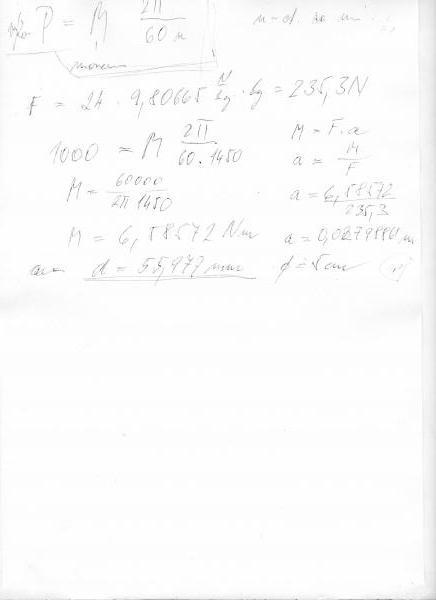 P = M 2π / 60 n
F = 24 · 9,80665 N/kg · kg = 235,3N
1000 = M 2π / 60·1450 M = F·a
a = M / F
M = 60000 / 2π 1450 a = 6,58572 / 235,3
M = 6,58572 Nm a = 0,0279886 m
d = 55,977 mm